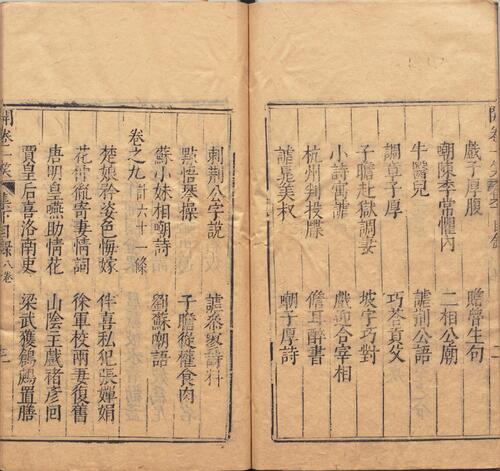 戲子厚腹
贈營生句
嘲陳季常懼內
二相公廟
牛醫兒
謔荆公語
調章子厚
巧荅貢父
子瞻赴獄調妻
坡字巧對
小詩寓謔
戲迎合宰相
杭州判投牒
儋耳醉書
謔晁美叔
嘲子厚詩
刺荆公字說
謔叅寥詩料
點悟琴操
子瞻從權食肉
蘇小妹相嘲詩
劉蘇嘲語
卷之九計六十一條
楚娘矜姿色悔嫁
伴喜私犯張嬋娟
花仲胤寄妻情詞
徐軍校兩妻復舊
唐明皇嚥助情花
山陰王戲褚彥回
賈皇后喜洛南吏
梁武獲鶬鶊置膳
開卷一笑
集下目錄
八卷